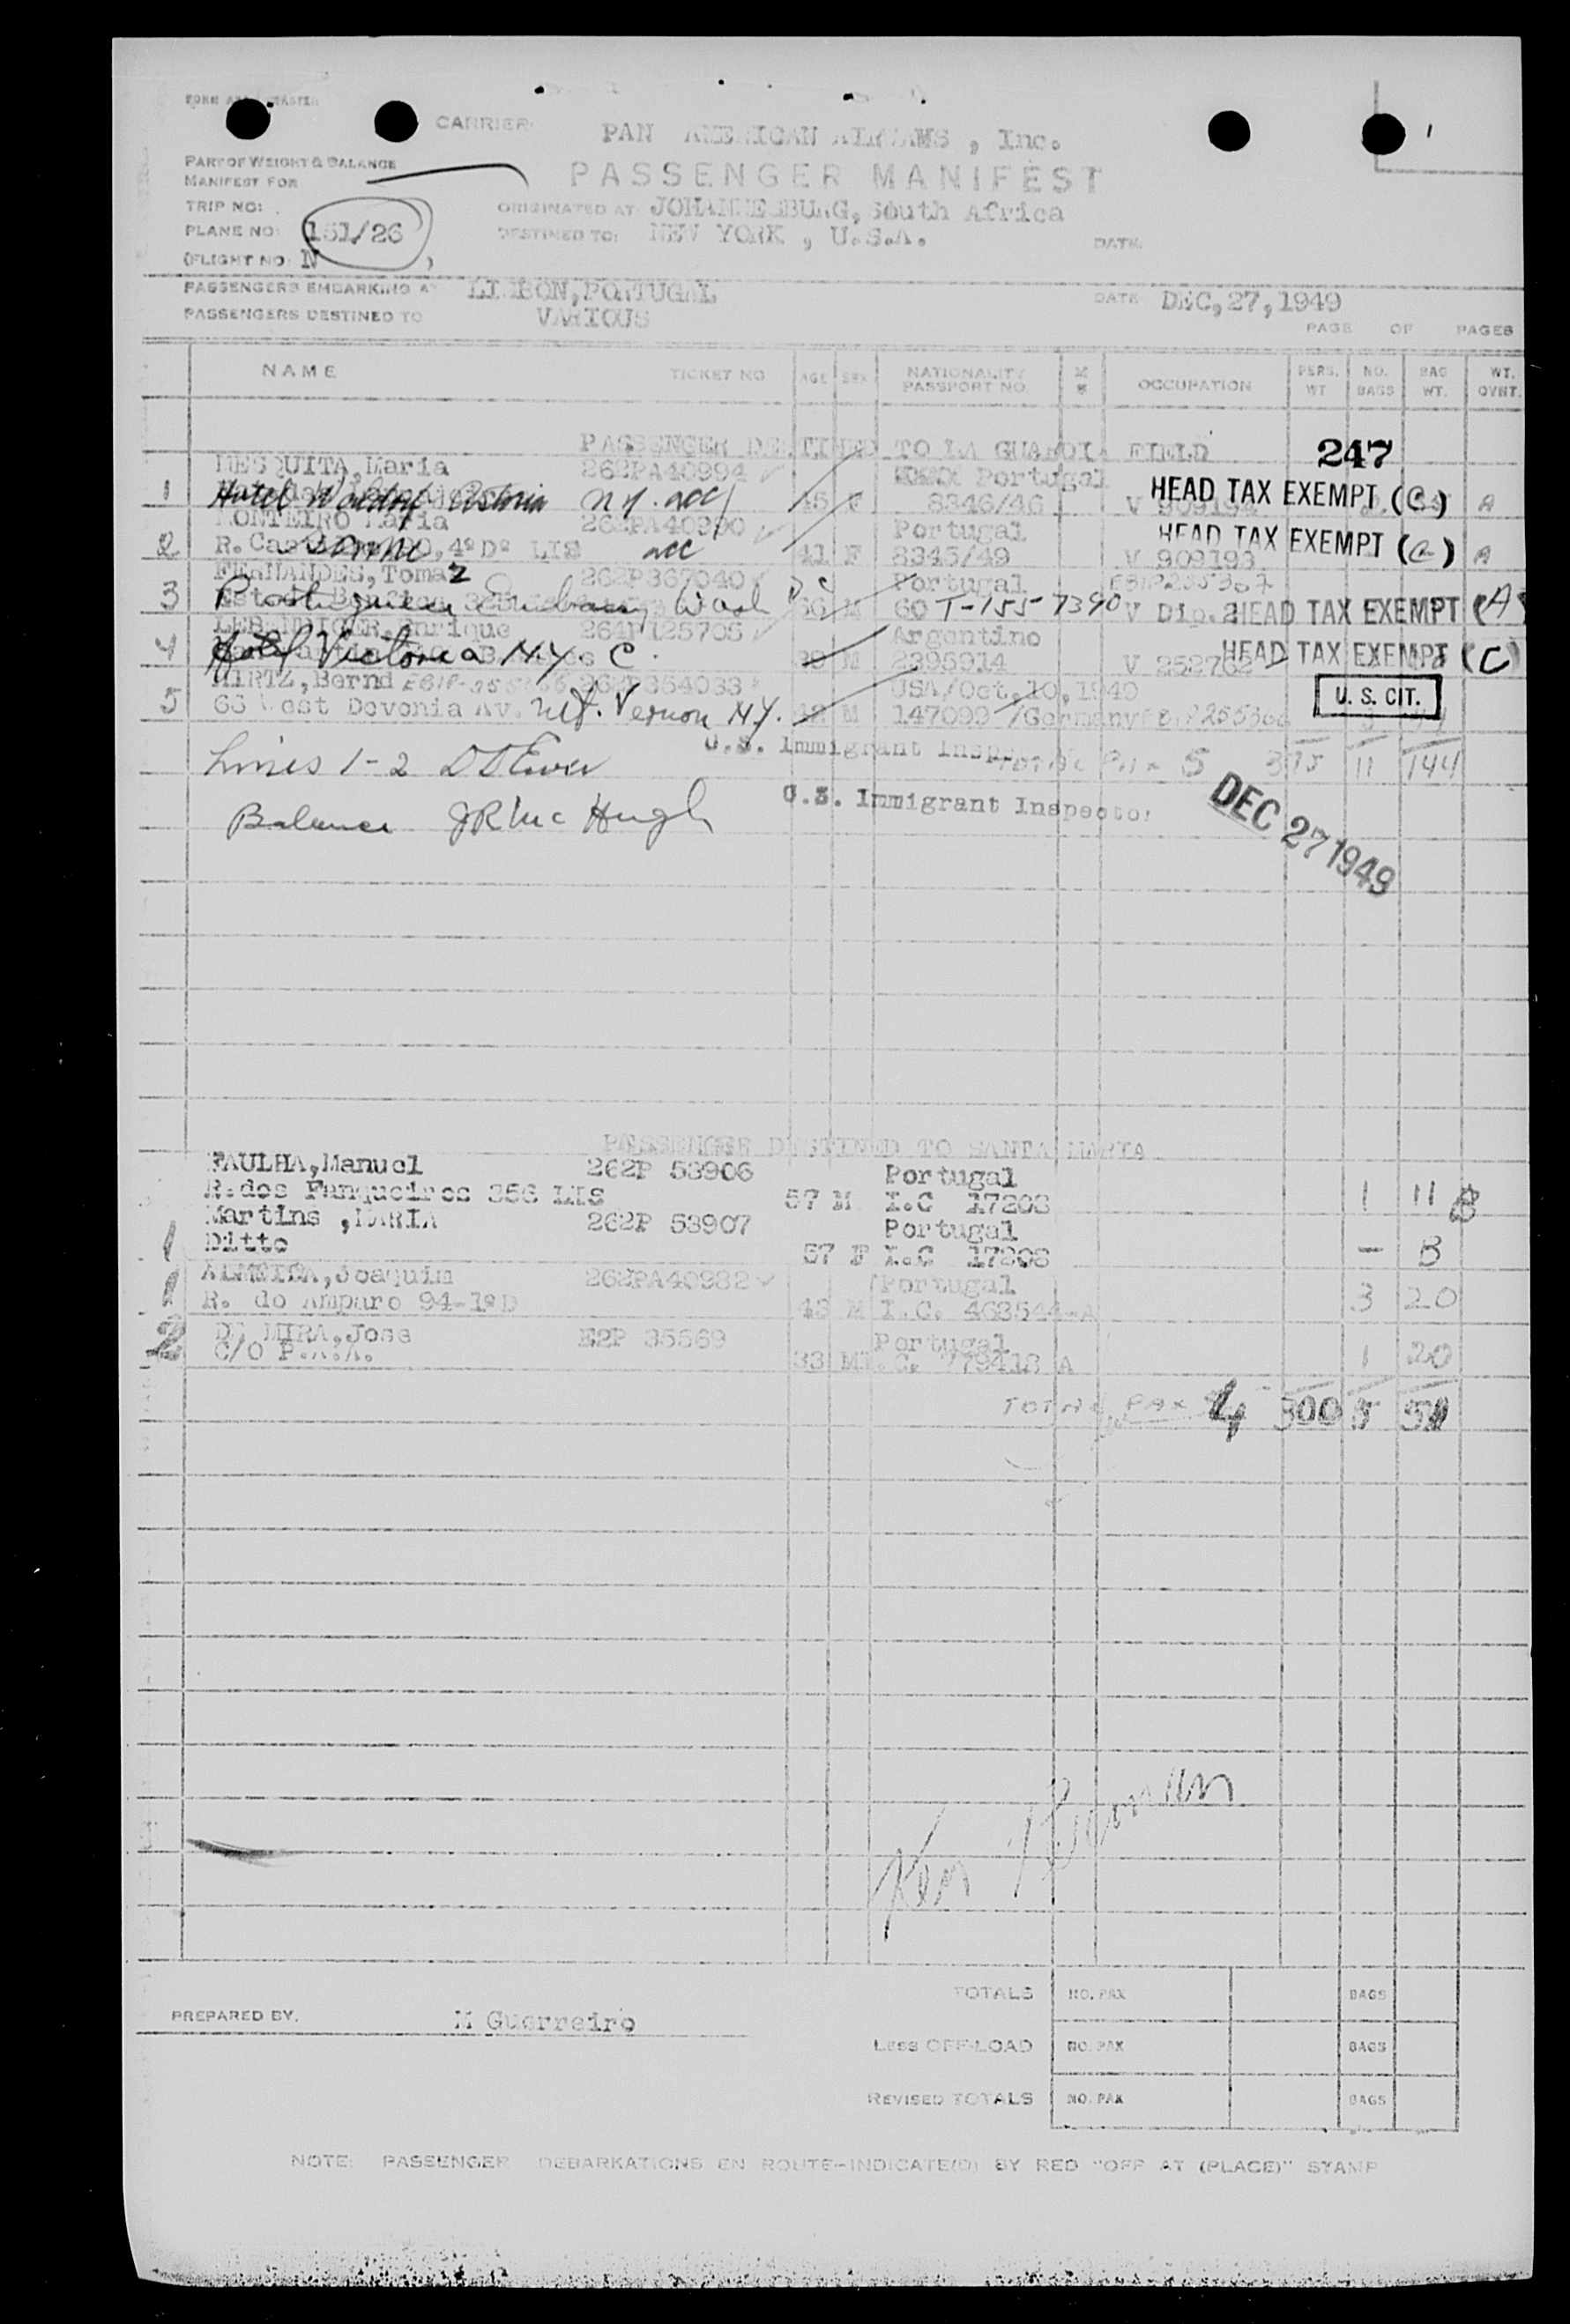 CARRIER: PAN AMERICAN AIRWAYS, Inc.
PART OF WEIGHT & BALANCE
MANIFEST FOR
PASSENGER MANIFEST
TRIP NO:
ORIGINATED AT JOHANNESBURG, South Africa
PLANE NO: 151/26
DESTINED TO: NEW YORK, U.S.A.
DATE
(FLIGHT NO: N )
PASSENGERS EMBARKING AT LISBON, PORTUGAL DATE DEC, 27, 1949
PASSENGERS DESTINED TO VARIOUS
PAGE OF PAGES
NAME TICKET NO AGE SEX NATIONALITY PASSPORT NO. OCCUPATION PERS. WT NO. BAGS BAG WT. WT. OVRT.
PASSENGER DESTINED TO LA GUARDIA FIELD
247
MESQUITA, Maria 262PA40994 Portugal
1 Hotel Waldorf Astoria N.Y. acc 45 F 8346/46 V 909194 HEAD TAX EXEMPT (C) A
MONTEIRO Maria 262PA40990 Portugal
2 R. Cas 4º Dº LIS Same acc 41 F 8345/49 V 909193 HEAD TAX EXEMPT (C) A
FERNANDES, Tomaz 262P367040 Portugal
3 Portuguese Embassy Wash DC 66 M 60 T-155 7390 V Dip. HEAD TAX EXEMPT (A)
Enrique Argentino
4 Hotel Victoria NY C. 39 M 2395914 V 252762 HEAD TAX EXEMPT (C)
HIRTZ, Bernd 262P354033 USA/Oct, 10, 1940
5 66 West Devonia Av. Mt. Vernon N.Y. 42 M 147099 /Germany U. S. CIT.
U.S. Immigrant Inspector
TOTAL PAX 5 375 11 144
Lines 1-2
U.S. Immigrant Inspector
Balance JR Mc Hugh
DEC 27 1949
PASSENGER DESTINED TO SANTA MARIA
PAULHA, Manuel 262P 53906 Portugal
R. dos Fanqueiros 356 LIS 57 M I.C 17208 1 11
Martins, MARIA 262P 53907 Portugal
1 Ditto 57 F I.C 17208 - B
ALMEIDA, Joaquim 262PA40982 Portugal
1 R. do Amparo 94-1ºD 43 M I.C. 463544-A 3 20
DE MIRA, Jose E2P 35569 Portugal
2 C/O P.A.A. 33 M I.C. 779418 A 1 20
TOTAL PAX 4 300 5 51
Ken
TOTALS NO. PAX BAGS
PREPARED BY. M Guerreiro
Less OFF-LOAD NO. PAX BAGS
REVISED TOTALS NO. PAX BAGS
NOTE: PASSENGER DEBARKATIONS EN ROUTE-INDICATE(D) BY RED "OFF AT (PLACE)" STAMP